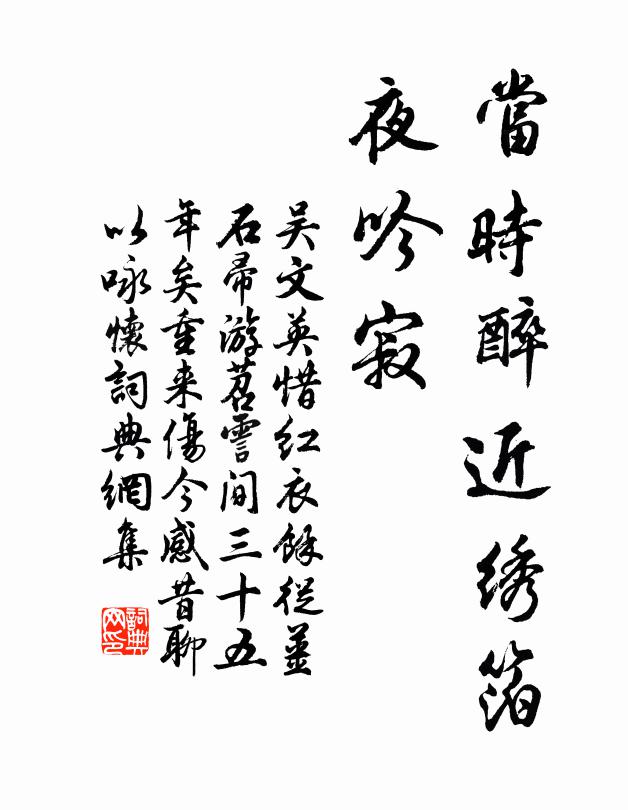 當時醉近綉箔
夜吟寂
吴文英惜红衣餘從薑
石帚游苕霅间三十五
年矣重来傷今感昔聊
以咏懷詞典網集
詞典网印